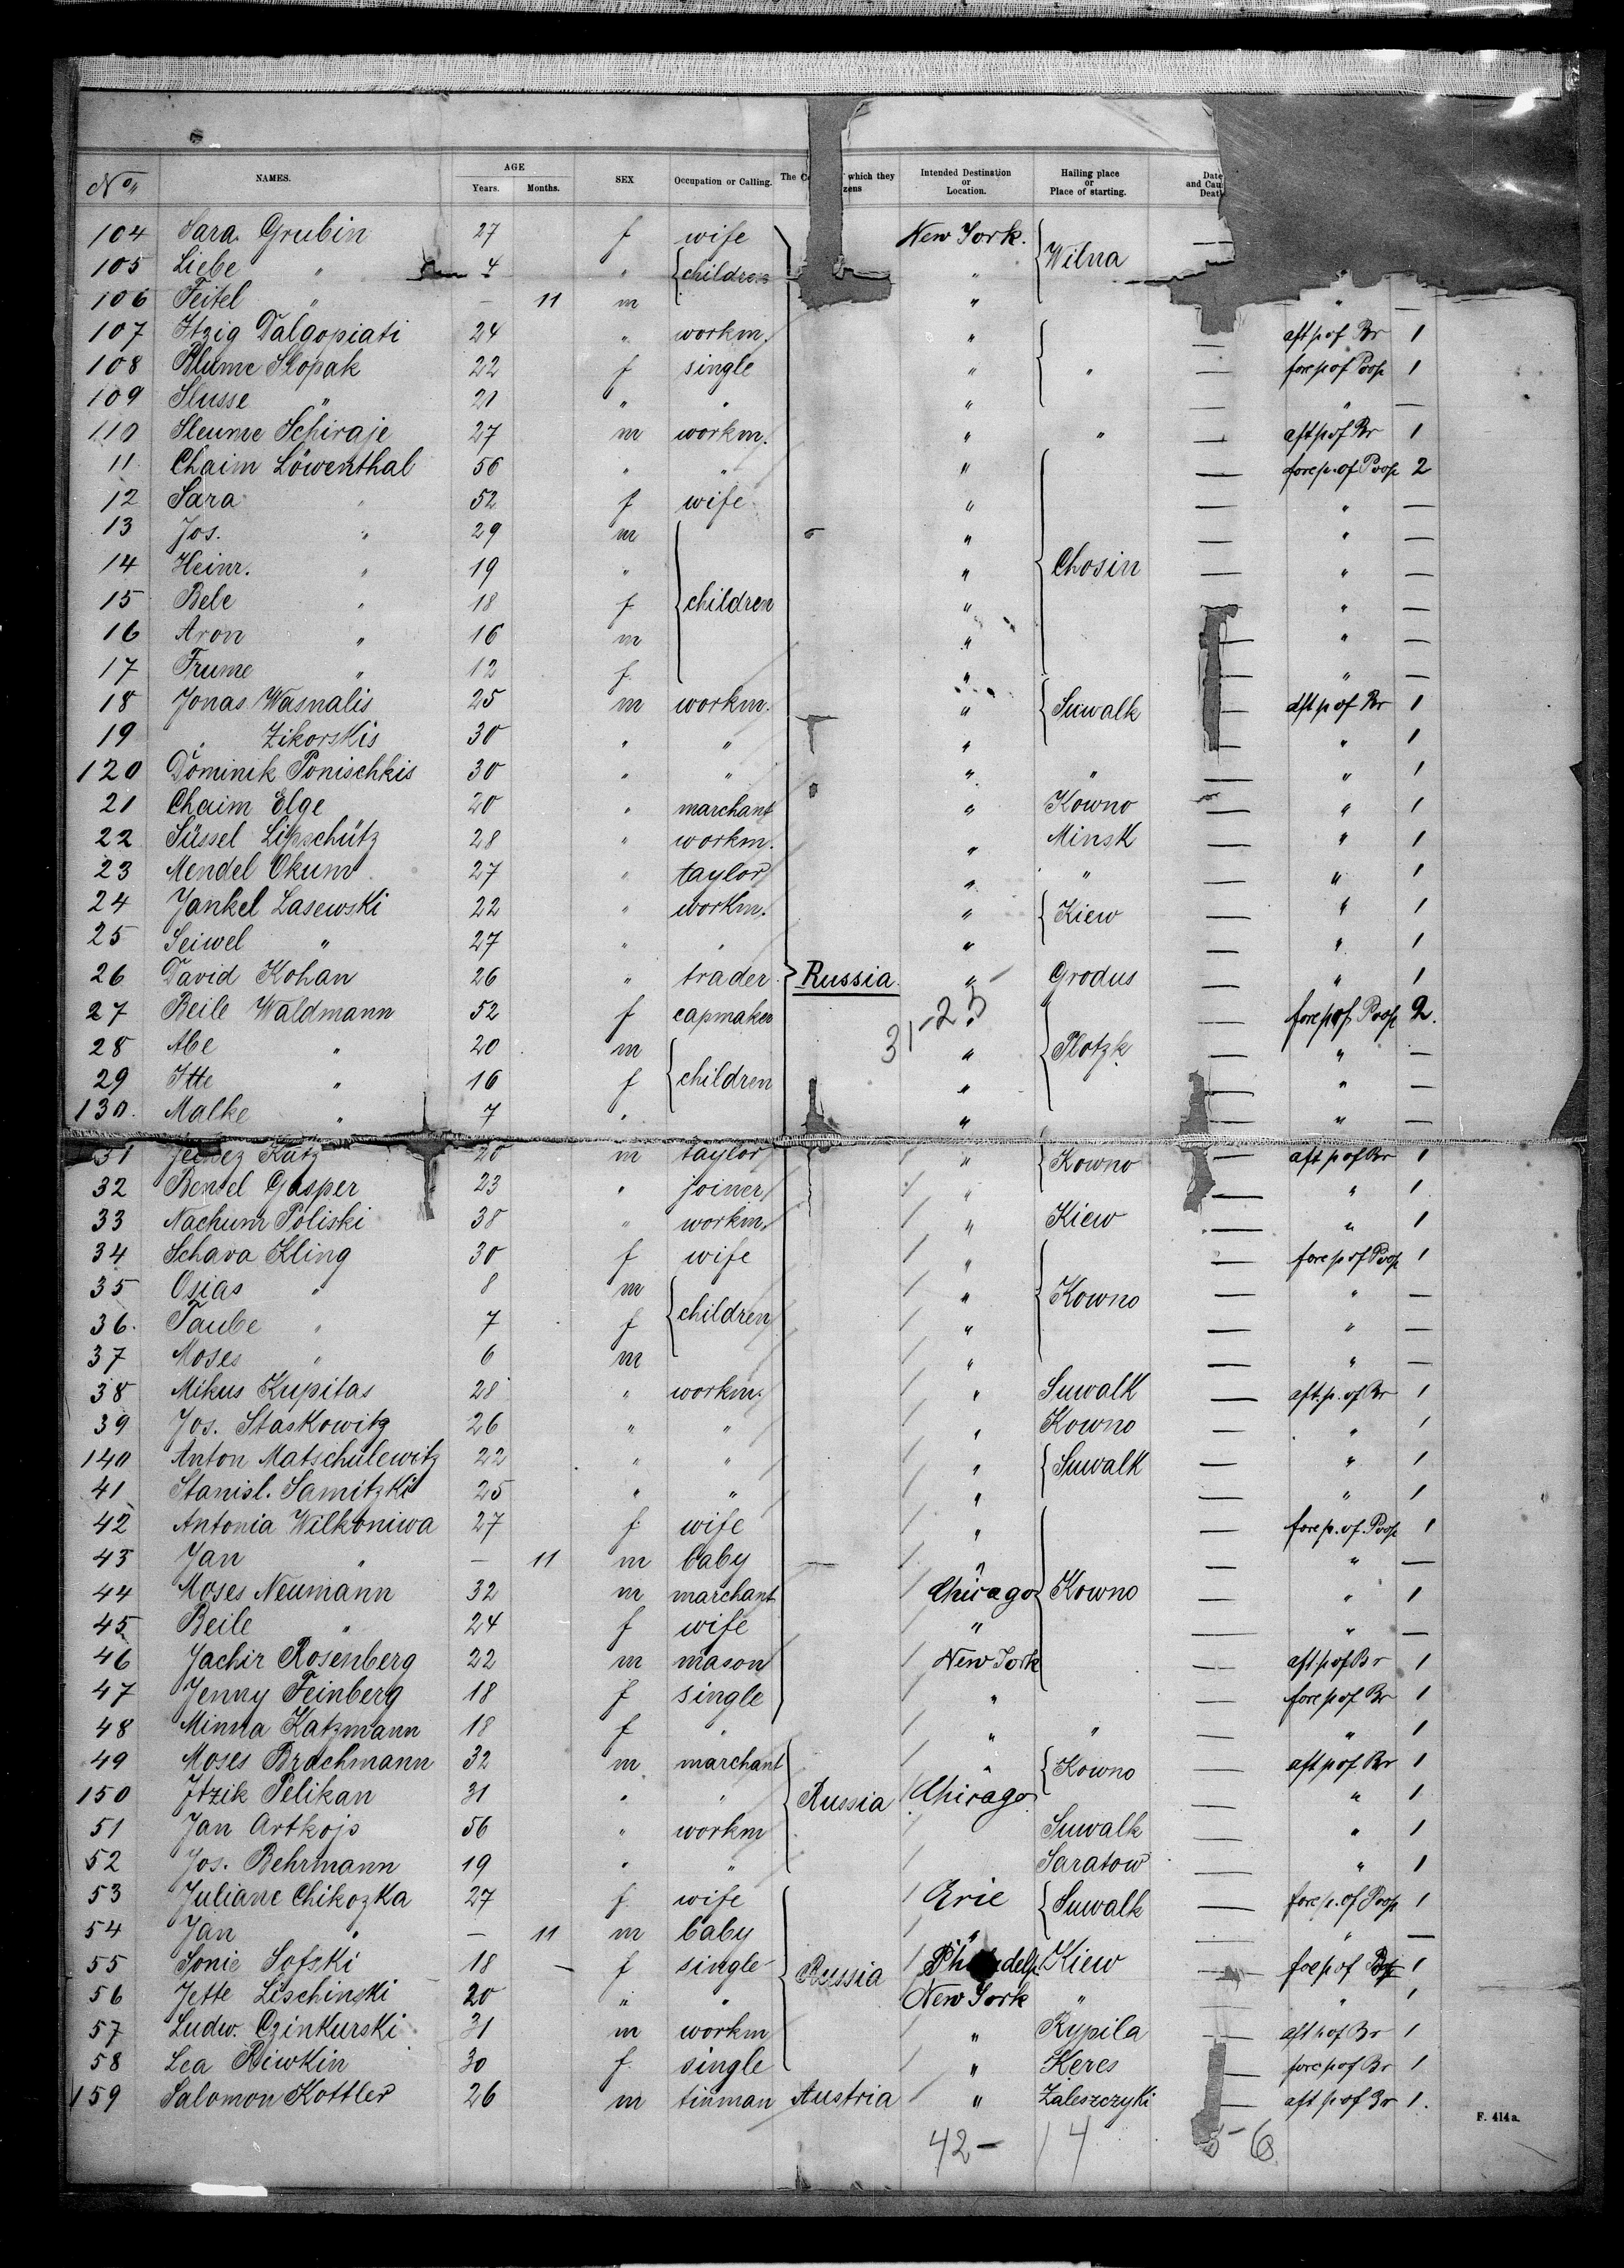 No. NAMES. AGE Years. Months. SEX Occupation or Calling. The which they zens Intended Destination or Location. Hailing place or Place of starting. Date and Cau Death
104 Sara Grubin 27 f wife New York. Wilna —
105 Liebe " 4 " children "
106 Feitel " — 11 m " " —
107 Itzig Dalgopiati 24 " workm. " — aft p of Br 1
108 Blume Slopak 22 f single " " — fore p of Poop 1
109 Slusse " 21 " " " — " —
110 Sleume Schiraje 27 m workm. " " — aft p of Br 1
11 Chaim Löwenthal 56 " " " — fore p. of Poop 2
12 Sara " 52 f wife " — " —
13 Jos. " 29 m " — " —
14 Heinr. " 19 " " Chosin — " —
15 Bele " 18 f children " — " —
16 Aron " 16 m " — " —
17 Frume " 12 f " — " —
18 Jonas Wasnalis 25 m workm. " Suwalk aft p of Br 1
19 " Zikorskis 30 " " " — " 1
120 Dominik Ponischkis 30 " " " " — " 1
21 Chaim Elge 20 " marchant " Kowno — " 1
22 Süssel Lipschütz 28 " workm. " Minsk — " 1
23 Mendel Okum 27 " taylor " " — " 1
24 Jankel Lasewski 22 " workm. " Kiew — " 1
25 Seiwel " 27 " " " — " 1
26 David Kohan 26 " trader Russia " Grodus — " 1
27 Beile Waldmann 52 f capmaker 31-23 " fore p of Poop 2.
28 Abe " 20 m " Plotzk — " —
29 Itte " 16 f children " — " —
130. Malke " 7 " " — " —
31 Kutz 20 m taylor " Kowno — aft p of Br 1
32 Bensel Gasper 23 " joiner " — " 1
33 Nachum Poliski 38 " workm. " Kiew — " 1
34 Schava Kling 30 f wife " — fore p of Poop 1
35 Osias " 8 m " Kowno — " —
36. Taube " 7 f children " — " —
37 Moses " 6 m " — " —
38 Mikus Kupitas 28 " workm. " Suwalk — aft. p. of Br 1
39 Jos. Staskowitz 26 " " " Kowno — " 1
140 Anton Matschulewitz 22 " " " Suwalk — " 1
41 Stanisl. Samitzki 25 " " " — " 1
42 Antonia Wilkoniwa 27 f wife " — fore p. of Poop 1
43 Jan " — 11 m baby " — " —
44 Moses Neumann 32 m marchant Chicago Kowno — " 1
45 Beile " 24 f wife " — " —
46 Jachir Rosenberg 22 m mason New York — aft p of Br 1
47 Jenny Feinberg 18 f single " — fore p of Br 1
48 Minna Katzmann 18 f " " " — " 1
49 Moses Brachmann 32 m marchant " Kowno — aft p of Br 1
150 Itzik Pelikan 31 " " Russia Chicago — " 1
51 Jan Artkojs 56 " workm Suwalk — " 1
52 Jos. Behrmann 19 " " Saratow — " 1
53 Juliane Chikozka 27 f wife Erie Suwalk — fore p. of Poop 1
54 Jan " — 11 m baby " — " —
55 Sonie Sofski 18 — f single Russia Kiew — fore p of Br 1
56 Jette Lischinski 20 " " New York " — " 1
57 Ludw. Czinkurski 31 m workm " Kypila — aft p of Br 1
58 Lea Riwkin 30 f single " Keres — fore p of Br 1
159 Salomon Kottler 26 m tinman Austria " Zaleszczyki — aft p of Br 1.
F. 414a.
42- 14 6